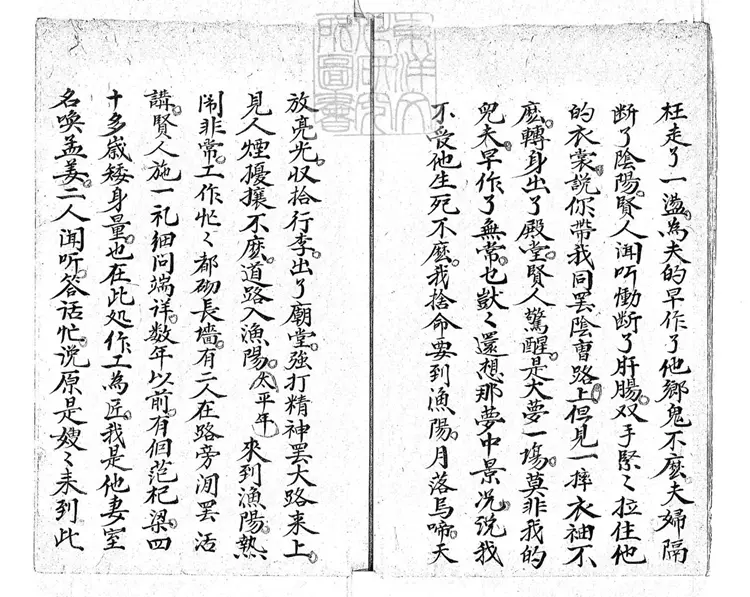 東洋文
化研究
所圖書
枉走了一盪。為夫的早作了他鄉鬼不庅。夫婦隔
断了陰陽。賢人闻听慟断了肝腸。双手緊〻拉住他
的衣裳。說你帶我同罢陰曹路上。但見一摔衣袖不
庅。轉身出了殿堂。賢人驚醒。是大夢一塲。莫非我的
兒夫早作了無常。也獃〻還想那夢中景况。說我
不受他生死不庅。我捨命要到漁陽。月落烏啼。天
放亮光。収拾行李出了廟堂。強打精神罢大路来上。
見人煙擾攘不庅。道路入漁陽。太平年 來到漁陽熱
闹非常。工作忙〻都砌長墙。有二人在路旁闲罢活
講。賢人施一礼细问端详。数年以前。有個范杞梁。四
十多歲矮身量。也在此処作工為匠。我是他妻室
名唤孟姜。二人闻听。答话忙。说原是嫂〻来到此